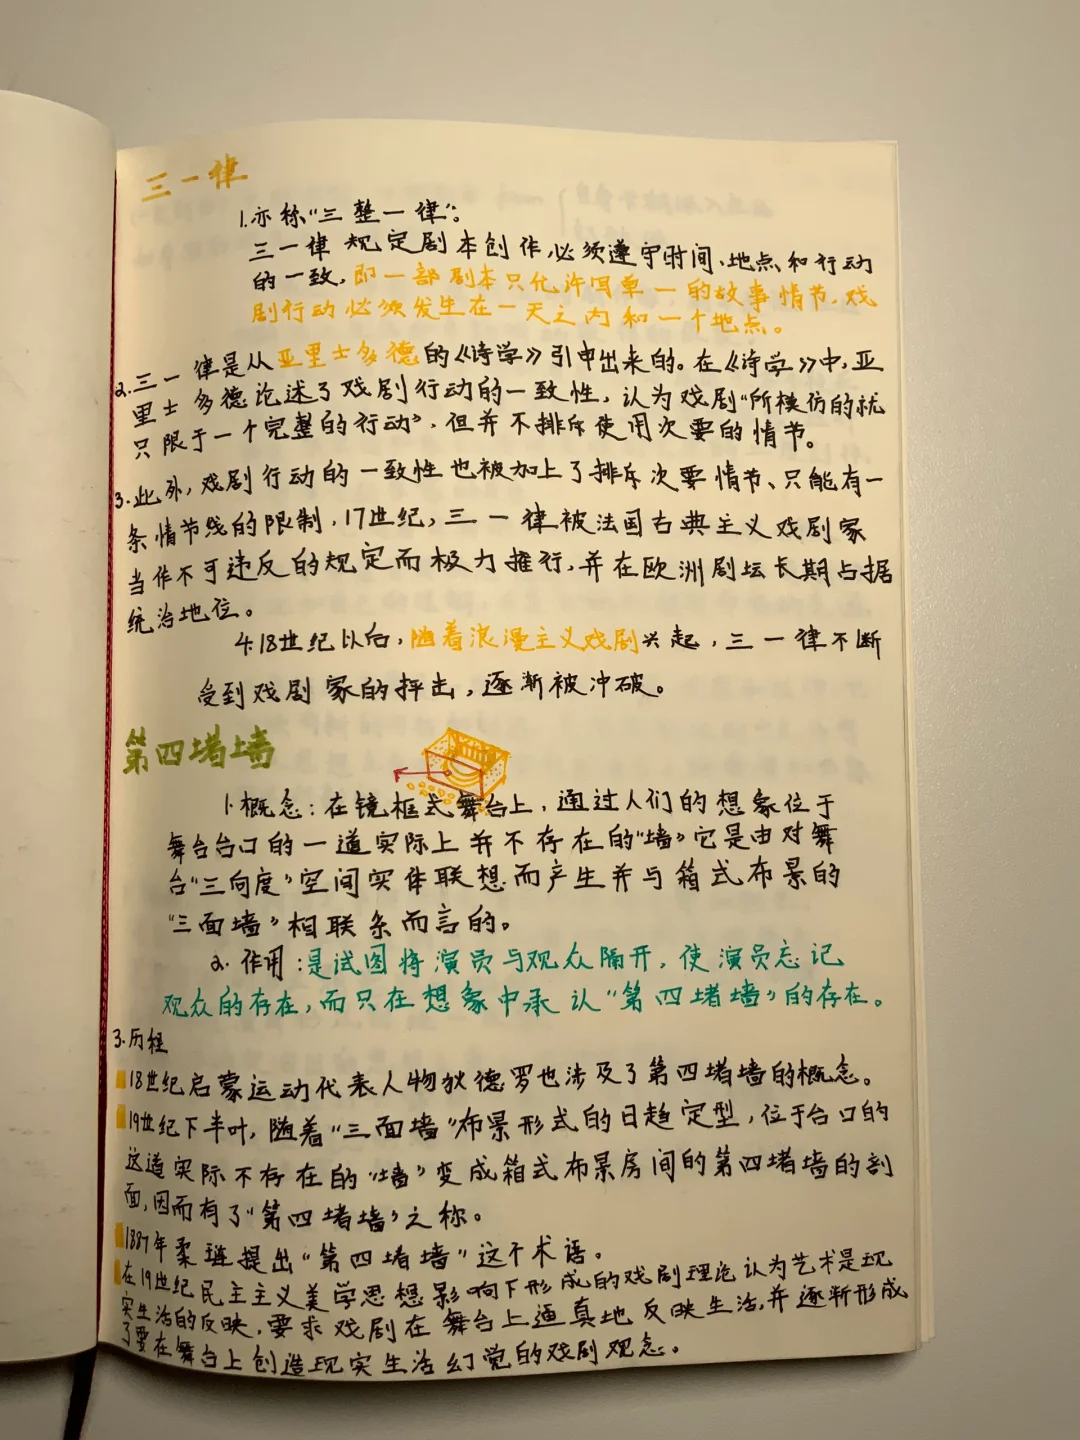 三一律
1.亦称“三整一律”。
三一律规定剧本创作,必须遵守时间、地点和行动
的一致,即一部剧本只允许写单一的故事情节,戏
剧行动必须发生在一天之内和一个地点。
2.三一律是从亚里士多德的《诗学》引申出来的。在《诗学》中,亚
里士多德论述了戏剧行动的一致性,认为戏剧“所模仿的就
只限于一个完整的行动”,但并不排斥使用次要的情节。
3.此外,戏剧行动的一致性也被加上了排斥次要情节、只能有一
条情节线的限制,17世纪,三一律被法国古典主义戏剧家
当作不可违反的规定而极力推行,并在欧洲剧坛长期占据
统治地位。
4.18世纪以后,随着浪漫主义戏剧兴起,三一律不断
受到戏剧家的抨击,逐渐被冲破。
第四堵墙
1.概念:在镜框式舞台上,通过人们的想象位于
舞台台口的一道实际上并不存在的“墙”它是由对舞
台“三向度”空间实体联想而产生并与箱式布景的
“三面墙”相联系而言的。
2.作用:是试图将演员与观众隔开,使演员忘记
观众的存在,而只在想象中承认“第四堵墙”的存在。
3.历程
18世纪启蒙运动代表人物狄德罗也涉及了第四堵墙的概念。
19世纪下半叶,随着“三面墙”布景形式的日趋定型,位于台口的
这道实际不存在的“墙”变成箱式布景房间的第四堵墙的剖
面,因而有了“第四堵墙”之称。
1887年柔琏提出“第四堵墙”这个术语。
在19世纪民主主义美学思想影响下形成的戏剧理论认为艺术是现
实生活的反映,要求戏剧在舞台上逼真地反映生活,并逐渐形成
了要在舞台上创造现实生活幻觉的戏剧观念。